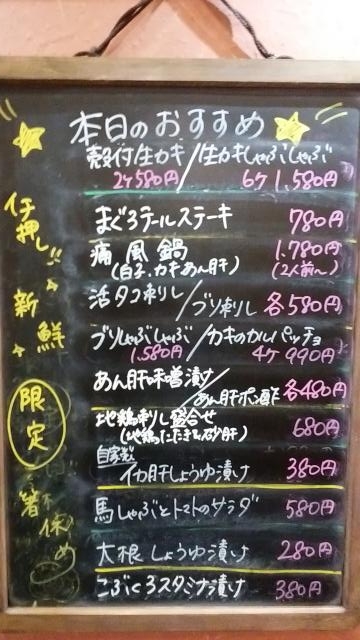 本日のおすすめ
殻付生カキ/生カキしゃぶしゃぶ
2ケ580円 6ケ1,580円
まぐろテールステーキ 780円
痛風鍋 1,780円
(白子、カキあん肝) (2人前〜)
活タコ刺し/ブリ刺し 各580円
ブリしゃぶしゃぶ/カキのカルパッチョ
1,580円 4ケ 990円
あん肝味噌漬け/あん肝ポン酢 各480円
地鶏刺し盛合せ 680円
(地鶏たたきと砂肝)
自家製
イカ肝しょうゆ漬け 380円
馬しゃぶとトマトのサラダ 580円
大根しょうゆ漬け 280円
こぶくろスタミナ漬け 380円
イチ押し!!
新鮮
限定
箸休め